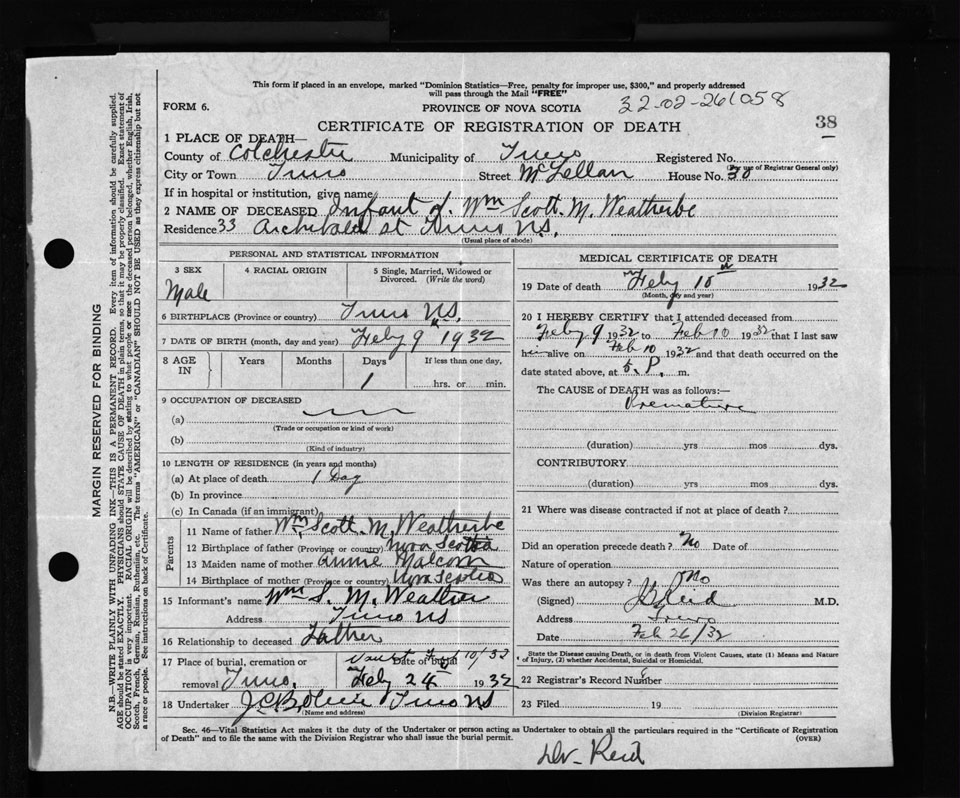 This form if placed in an envelope, marked "Dominion Statistics—Free, penalty for improper use, $300," and properly addressed
will pass through the Mail "FREE"
FORM 6.
PROVINCE OF NOVA SCOTIA
32-02-261058
CERTIFICATE OF REGISTRATION OF DEATH
38
1 PLACE OF DEATH—
County of Colchester Municipality of Truro Registered No.
(For use of Registrar General only)
City or Town Truro Street McLellan House No. 30
If in hospital or institution, give name
2 NAME OF DECEASED Infant of Wm Scott. M. Weatherbe
Residence 33 Archibald st Truro N.S.
(Usual place of abode)
PERSONAL AND STATISTICAL INFORMATION
3 SEX
4 RACIAL ORIGIN
5 Single, Married, Widowed or
Divorced. (Write the word)
Male
6 BIRTHPLACE (Province or country) Truro N.S.
7 DATE OF BIRTH (month, day and year) Feby 9 1932
8 AGE IN
Years Months Days If less than one day,
1 hrs. or min.
9 OCCUPATION OF DECEASED
(a)
(Trade or occupation or kind of work)
(b)
(Kind of industry)
10 LENGTH OF RESIDENCE (in years and months)
(a) At place of death 1 Day
(b) In province
(c) In Canada (if an immigrant)
Parents
11 Name of father Wm Scott. M. Weatherbe
12 Birthplace of father (Province or country) Nova Scotia
13 Maiden name of mother Annie Malcom
14 Birthplace of mother (Province or country) Nova Scotia
15 Informant's name Wm S. M. Weatherbe
Address Truro NS
16 Relationship to deceased Father
17 Place of burial, cremation or
Vault Date of burial Feby 10/32
removal Truro. Feby 24 1932
18 Undertaker Truro NS
(Name and address)
MEDICAL CERTIFICATE OF DEATH
19 Date of death Feby 10 1932
(Month, day and year)
20 I HEREBY CERTIFY that I attended deceased from
Feby 9 1932 to Feb 10 1932 that I last saw
alive on Feb 10 1932 and that death occurred on the
date stated above, at 5. P. m.
The CAUSE of DEATH was as follows:—
Premature
(duration) yrs mos dys.
CONTRIBUTORY
(duration) yrs mos dys.
21 Where was disease contracted if not at place of death?
Did an operation precede death? No Date of
Nature of operation
Was there an autopsy? No
(Signed) Reid M.D.
Address Truro
Date Feb 26/32
State the Disease causing Death, or in death from Violent Causes, state (1) Means and Nature
of Injury, (2) whether Accidental, Suicidal or Homicidal.
22 Registrar's Record Number
23 Filed 19
(Division Registrar)
Sec. 46—Vital Statistics Act makes it the duty of the Undertaker or person acting as Undertaker to obtain all the particulars required in the "Certificate of Registration
of Death" and to file the same with the Division Registrar who shall issue the burial permit.
(OVER)
Dr- Reid
MARGIN RESERVED FOR BINDING
N.B.—WRITE PLAINLY WITH UNFADING INK—THIS IS A PERMANENT RECORD. Every item of information should be carefully supplied.
AGE should be stated EXACTLY. PHYSICIANS should STATE CAUSE OF DEATH in plain terms, so that it may be properly classified. Exact statement of
OCCUPATION is very important. RACIAL ORIGIN will be described by stating to what people or race the deceased person belonged, whether English, Irish,
Scotch, French, German, Russian, Ruthenian, etc. The terms "AMERICAN" or "CANADIAN" SHOULD NOT BE USED as they express citizenship but not
a race or people. See instructions on back of Certificate.